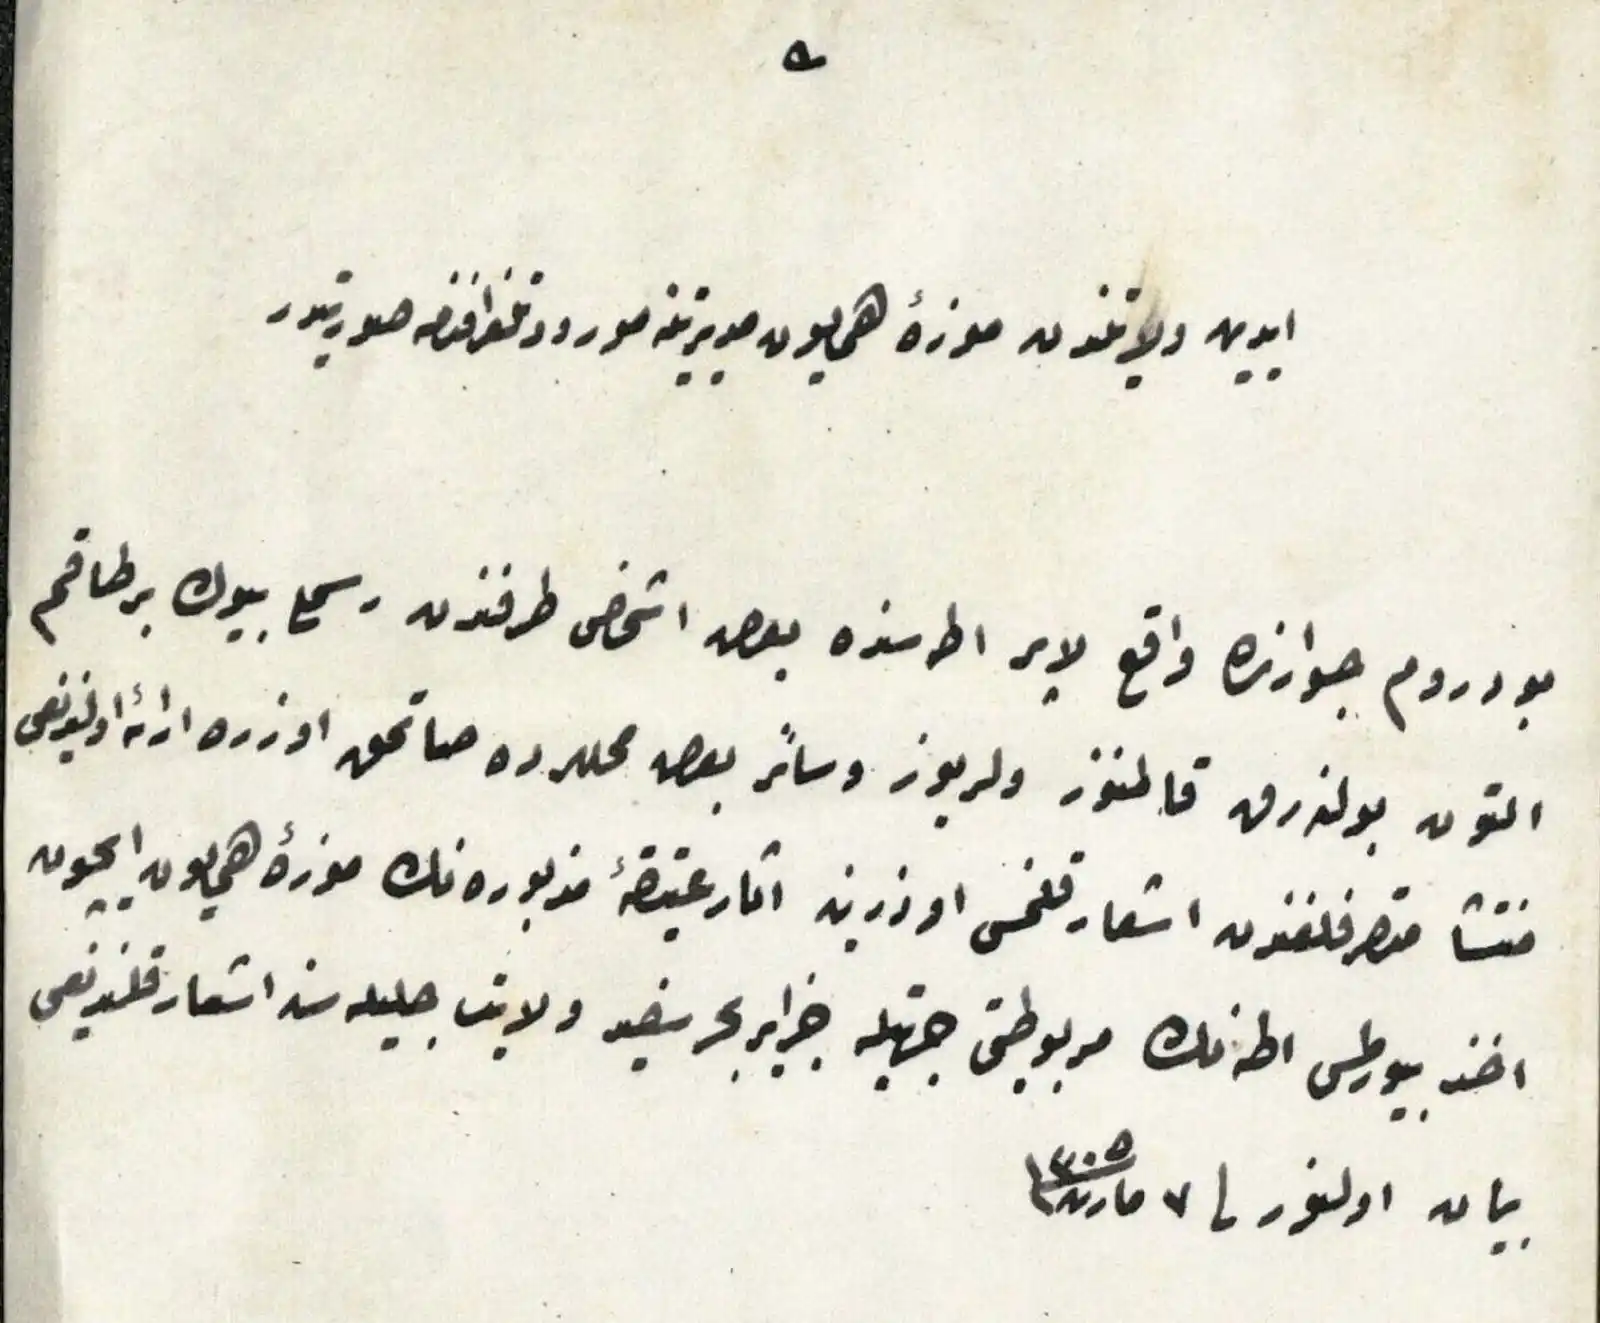 ایدین ولایتندن موزهٔ همایون مدیریتنه مورود تلغرافنامه صورتیدر
بودروم جوارنده واقع لایر اطه سنده بعض اشخاص طرفندن رسملی بیوك بر طاقم
التون بولنه رق قالمنوز ولریوز وسائر بعض محللرده صاتمق اوزره ارائه اولندیغی
منتشا متصرفلغندن اشعار قلنمسی اوزرینه اثار عتیقهٔ مذبوره نك موزهٔ همایون ایچون
اخذ بیورلمسی اطه نك مربوطیتی جهتیله جزایر بحر سفید ولایت جلیله سنه اشعار قلندیغی
بیان اولنور فی ٧ مارت ١٣٠٥